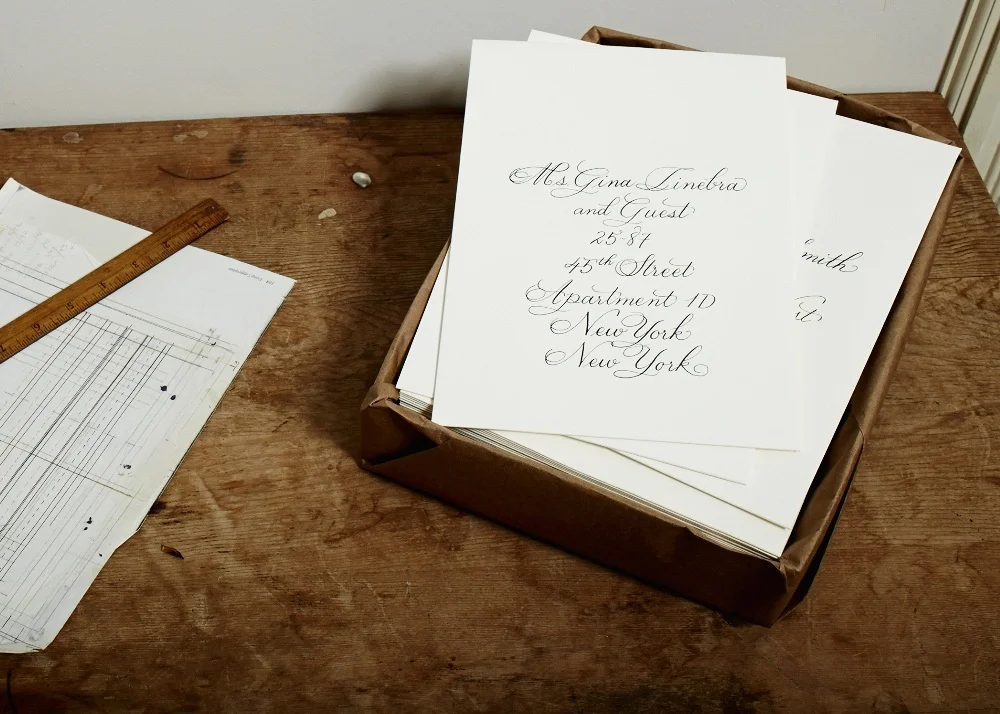 Ms. Gina Linebra
and Guest
25-87
45th Street
Apartment 1D
New York
New York
Smith